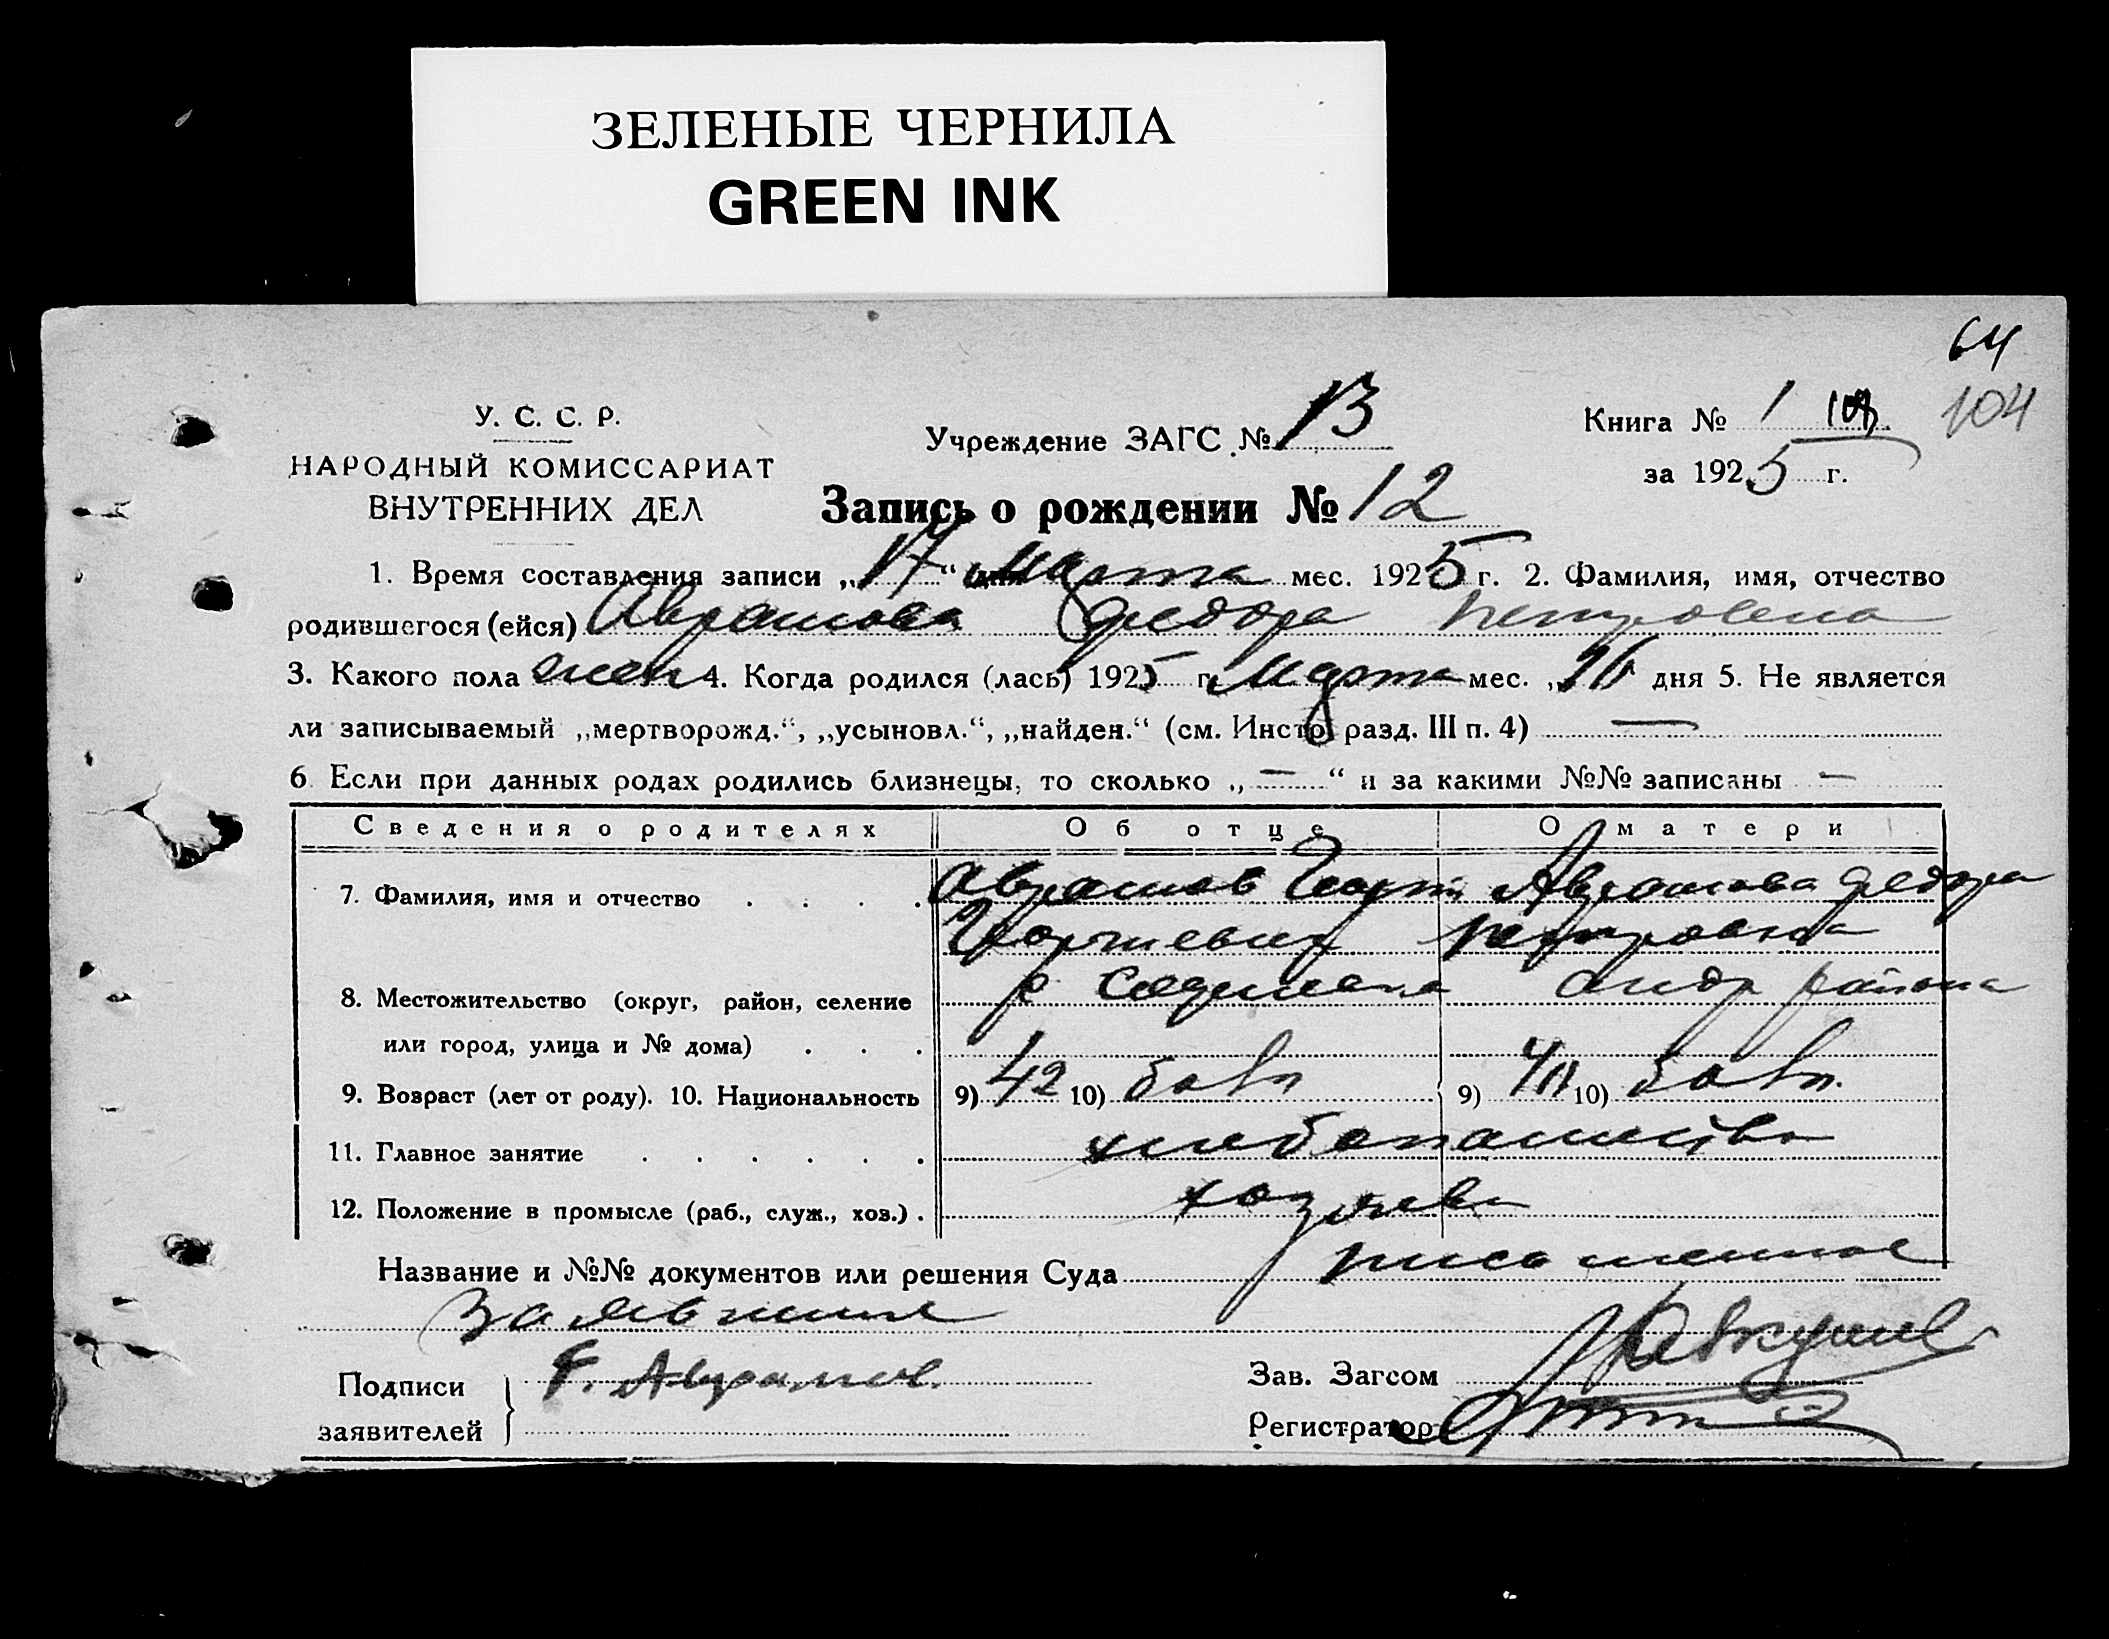 ЗЕЛЕНЫЕ ЧЕРНИЛА
GREEN INK
64
У. С. С. Р.
НАРОДНЫЙ КОМИССАРИАТ
ВНУТРЕННИХ ДЕЛ
Учреждение ЗАГС № 13
Книга № 1 104
за 1925 г.
Запись о рождении № 12
1. Время составления записи „17“ Марта мес. 1925 г. 2. Фамилия, имя, отчество
родившегося (ейся) Аврамова Федора Петровна
3. Какого пола жен 4. Когда родился (лась) 1925 г. Марта мес. „16 дня 5. Не является
ли записываемый „мертворожд.“, „усыновл.“, „найден.“ (см. Инстр. разд. III п. 4) —
6. Если при данных родах родились близнецы, то сколько „ — “ и за какими №№ записаны —
Сведения о родителях Об отце О матери
7. Фамилия, имя и отчество . . . . Аврамов Георги Аврамова Федора
Георгиевич Петровна
8. Местожительство (округ, район, селение с андр района
или город, улица и № дома) . . .
9. Возраст (лет от роду). 10. Национальность 9) 42 10) болг 9) 40 10) болг.
11. Главное занятие . . . . . . хлебопашество
12. Положение в промысле (раб., служ., хоз.) . хозяева
Название и №№ документов или решения Суда письменное
заявление
Подписи
заявителей
Г. Аврамов.
Зав. Загсом
Регистратор